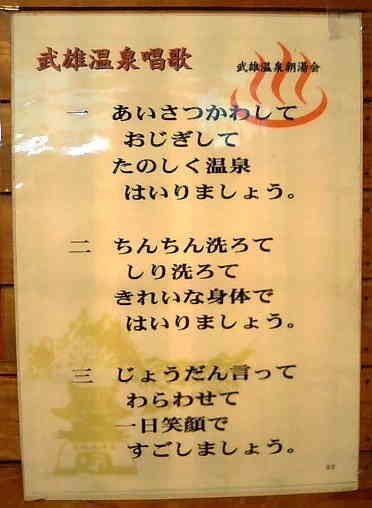 武雄温泉唱歌
武雄温泉朝湯会
一 あいさつかわして
おじぎして
たのしく温泉
はいりましょう。
二 ちんちん洗ろて
しり洗ろて
きれいな身体で
はいりましょう。
三 じょうだん言って
わらわせて
一日笑顔で
すごしましょう。